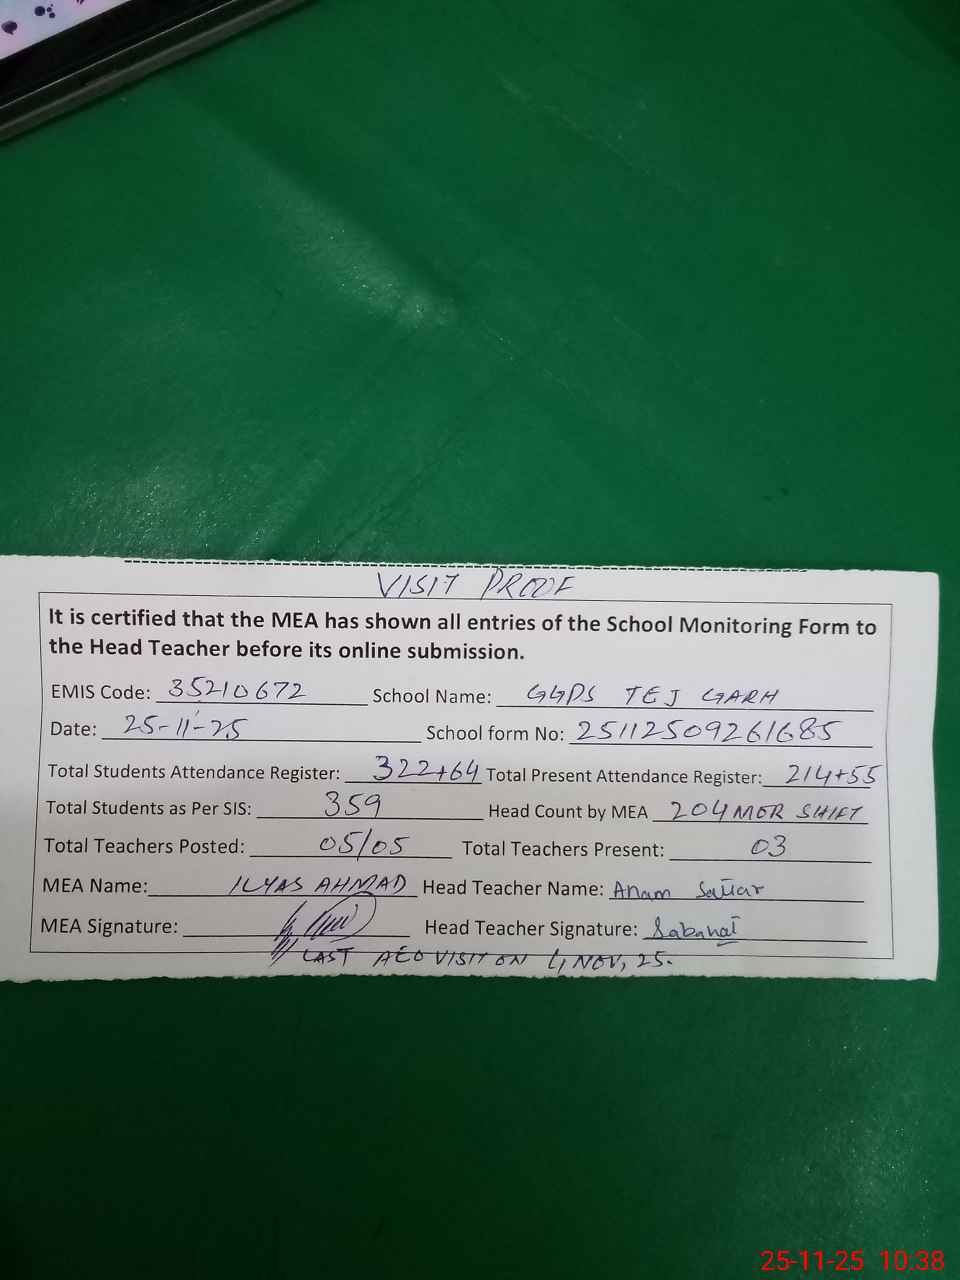 VISIT PROOF
It is certified that the MEA has shown all entries of the School Monitoring Form to
the Head Teacher before its online submission.
EMIS Code: 35210672 School Name: GGPS TEJ GARH
Date: 25-11-25 School form No: 25112509261685
Total Students Attendance Register: 322+64 Total Present Attendance Register: 214+55
Total Students as Per SIS: 359 Head Count by MEA 204 MOR SHIFT
Total Teachers Posted: 05/05 Total Teachers Present: 03
MEA Name: ILYAS AHMAD Head Teacher Name: Anam Sattar
MEA Signature: Head Teacher Signature: Sabahat
LAST AEO VISIT ON 4, NOV, 25.
25-11-25 10:38